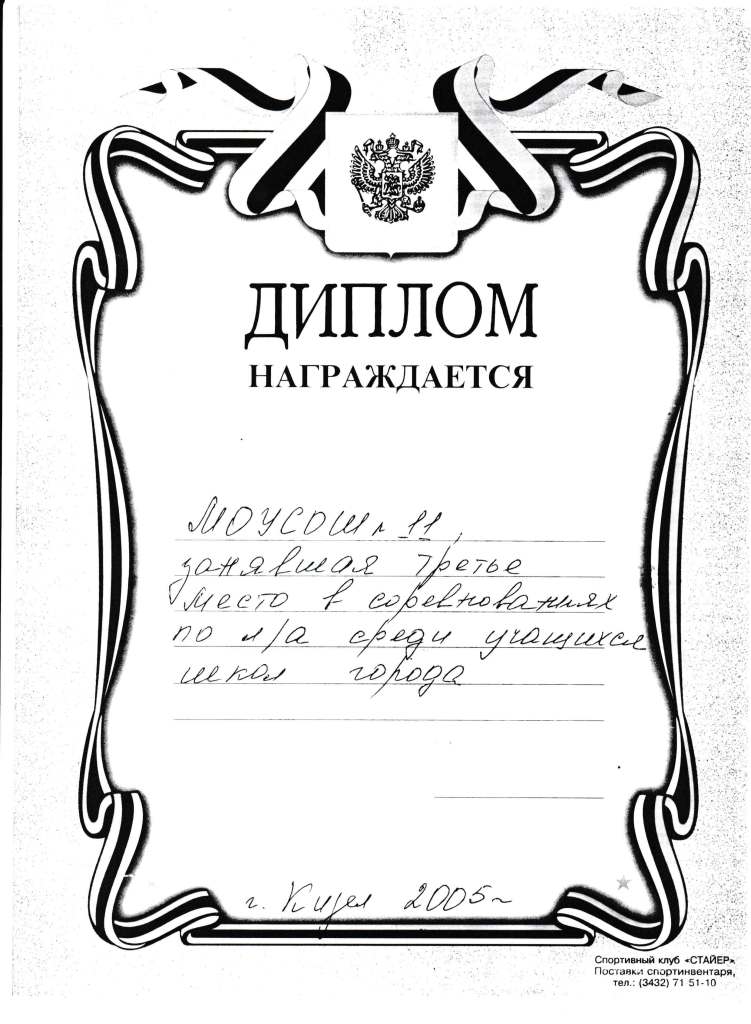 ДИПЛОМ
НАГРАЖДАЕТСЯ
МОУСОШ № 11,
занявшая третье
место в соревнованиях
по л/а среди учащихся
школ города
г. Кизел 2005г
Спортивный клуб «СТАЙЕР»
Поставки спортинвентаря,
тел.: (3432) 71 51-10